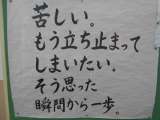 苦しい。
もう立ち止まって
しまいたい。
そう思った
瞬間から一歩。